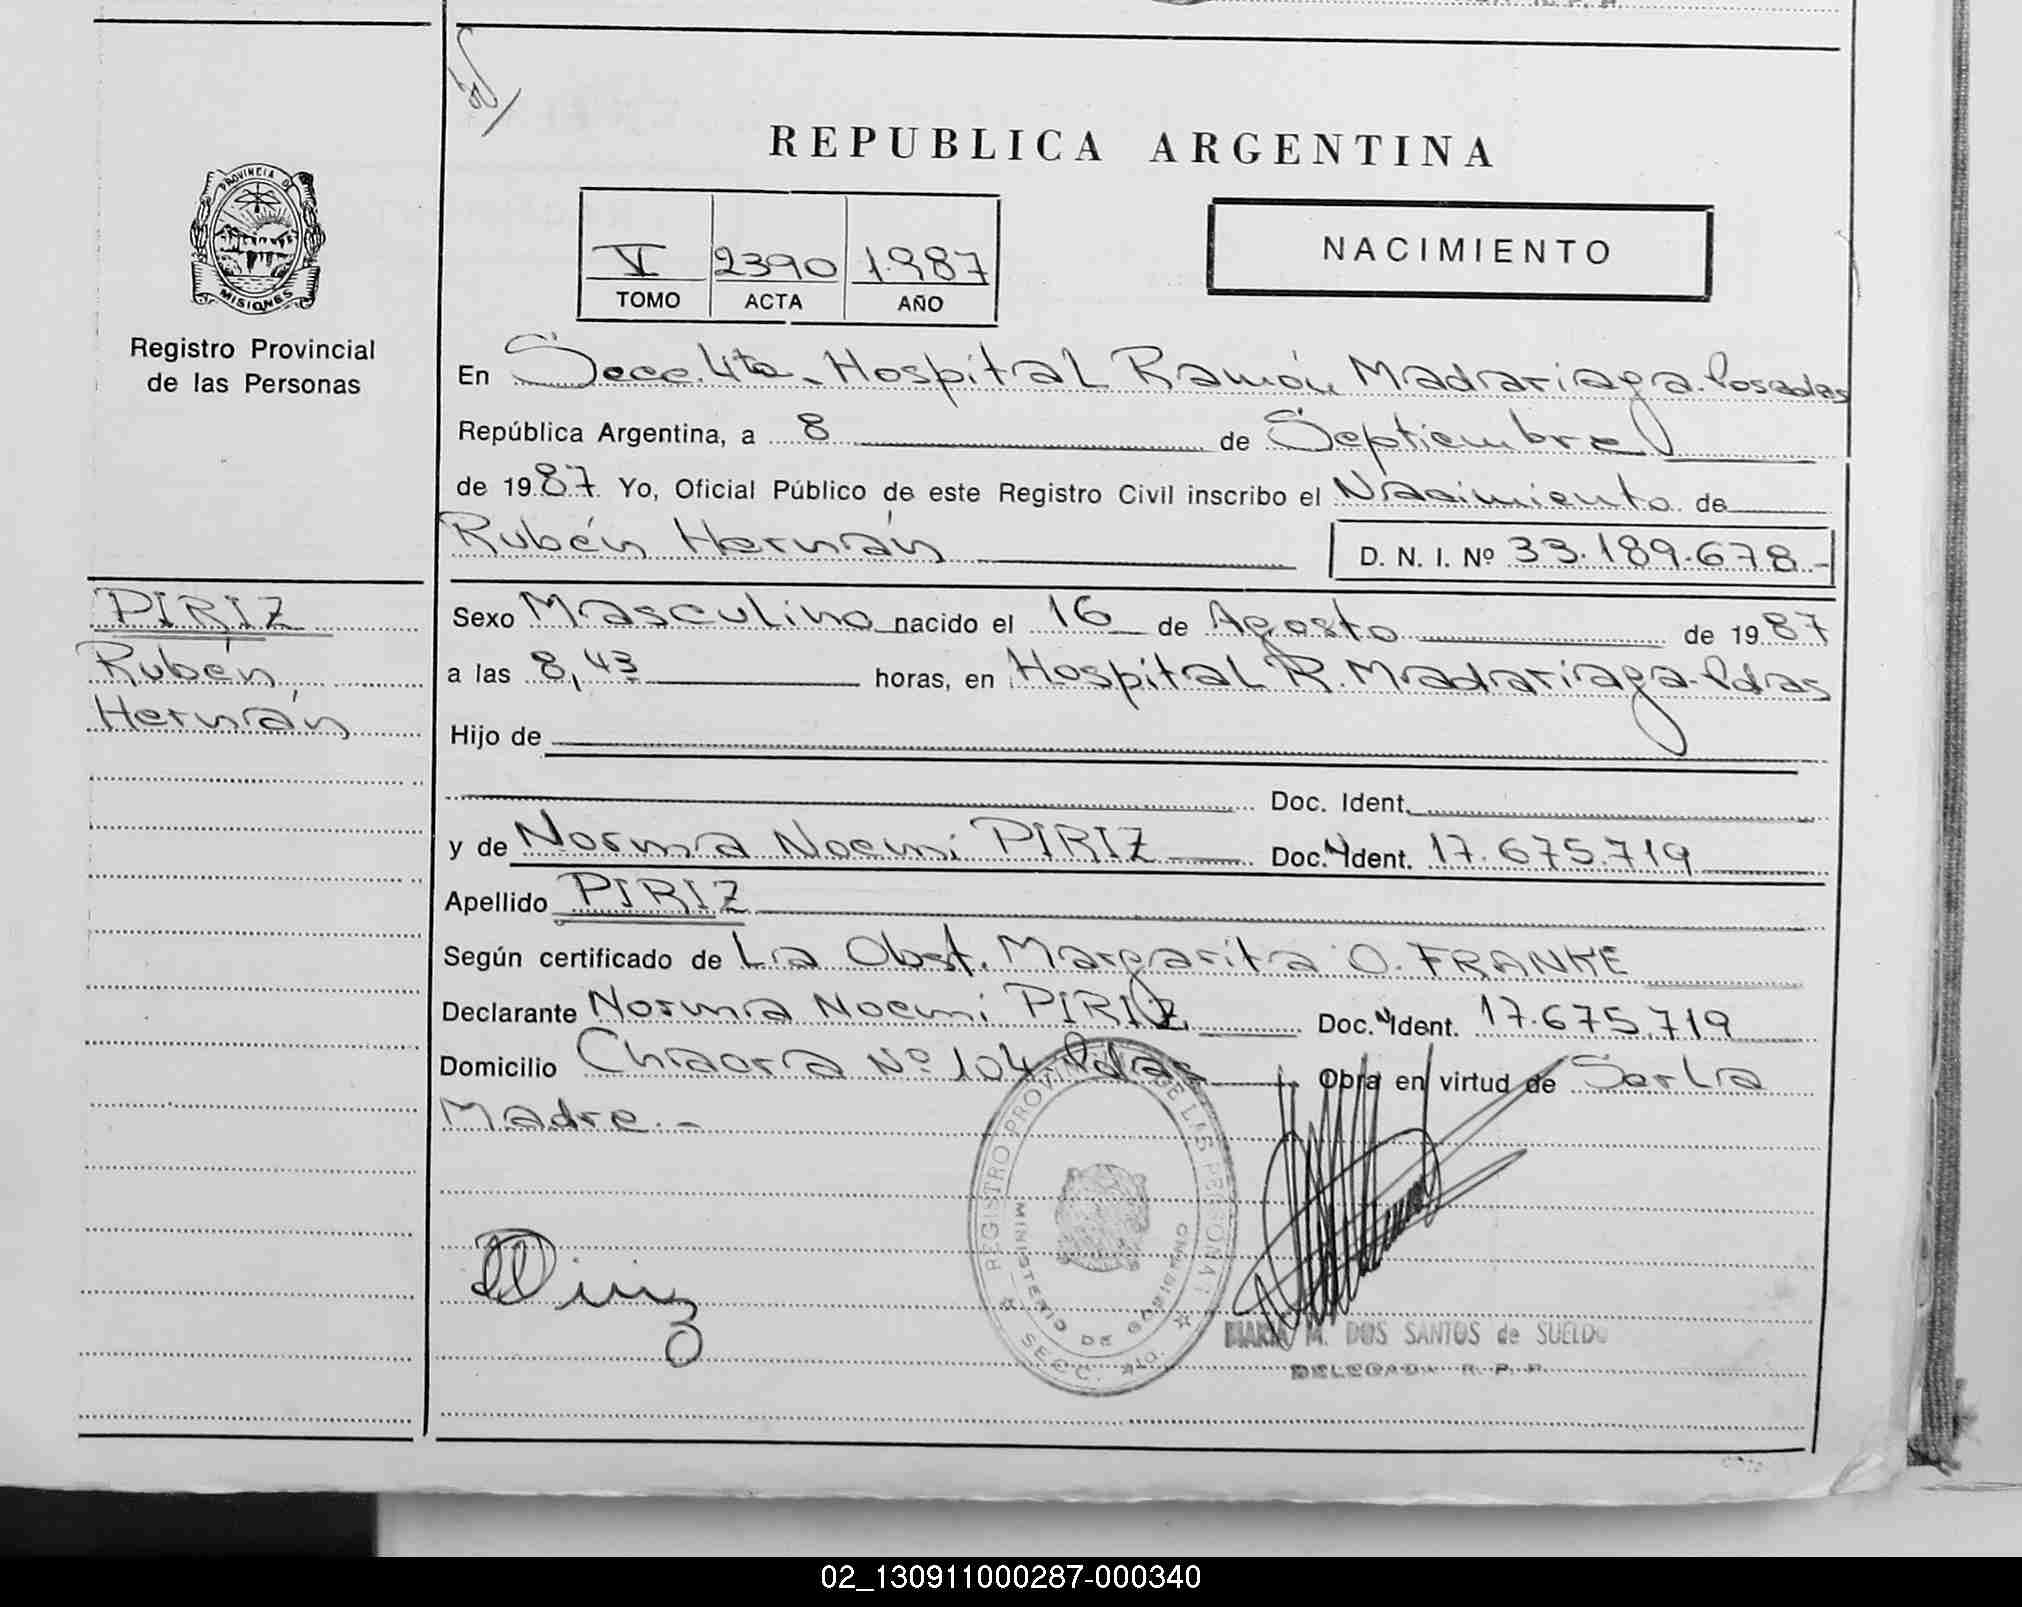 REPUBLICA ARGENTINA
PROVINCIA DE
MISIONES
Registro Provincial
de las Personas
V 2390 1.987
TOMO ACTA AÑO
NACIMIENTO
En Secc. 4ta. Hospital Ramón Madariaga. Posadas
República Argentina, a 8 de Septiembre
de 1987. Yo, Oficial Público de este Registro Civil inscribo el Nacimiento de
Rubén Hernán
D. N. I. Nº 33.189.678.-
PIRIZ
Rubén
Hernán
Sexo Masculino nacido el 16 de Agosto de 1987
a las 8,43 horas, en Hospital R. Madariaga. Pdas
Hijo de
Doc. Ident.
y de Norma Noemi PIRIZ Doc. Ident. 17.675.719
Apellido PIRIZ
Según certificado de La Obst. Margarita O. FRANKE
Declarante Norma Noemi PIRIZ Doc. Ident. 17.675.719
Domicilio Chacra Nº 104 Pdas Obra en virtud de Ser La
Madre.-
REGISTRO PROVINCIAL DE LAS PERSONAS
MINISTERIO DE GOBIERNO
SECC. 4to.
MARIA M. DOS SANTOS de SUELDO
DELEGADA R. P. P.
02_130911000287-000340